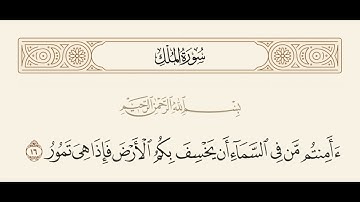 سُورَةُ الْمُلْكِ
بِسْمِ اللَّهِ الرَّحْمَٰنِ الرَّحِيمِ
ءَأَمِنتُم مَّن فِي السَّمَاءِ أَن يَخْسِفَ بِكُمُ الْأَرْضَ فَإِذَا هِيَ تَمُورُ ١٦